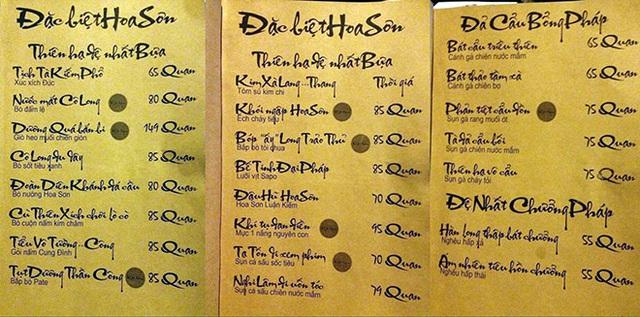 Đặc biệt Hoa Sơn
Thiên hạ đệ nhất Bựa
Tịch Tà Kiếm Phổ 65 Quan
Xúc xích Đức
Nước mắt Cô Long 80 Quan
Bò đấm lê
Dương Quá bán bi 149 Quan
Giò heo muối chiên giòn
Cô Long du dây 85 Quan
Bò sốt tiêu xanh
Đoàn Diên Khánh đá cầu 80 Quan
Bò nướng Hoa Sơn
Cú Thiên Xích chơi lò cò 85 Quan
Bò cuộn nấm kim châm
Tiêu Vô Tướng...Công 85 Quan
Gối nấm Cung Đình
Tụt Dương Thần Công 85 Quan
Bắp bò Pate
Đặc biệt Hoa Sơn
Thiên hạ đệ nhất Bựa
Kim Xà Lang...Thang Thời giá
Tôm sú kim chi
Khói ngập Hoa Sơn 85 Quan
Ếch cháy tiêu
Bóp "ấy" Long Trảo Thủ 85 Quan
Bắp bò tói chua
Bế Tinh Đại Pháp 85 Quan
Lưỡi vịt Sapo
Đậu Hũ Hoa Sơn 70 Quan
Hoa Sơn Luận Kiếm
Khí tụ đan điền 95 Quan
Mực 1 nắng nguyên con
Tạ Tốn đi xem phim 70 Quan
Sụn cá sấu sóc tiêu
Nghi Lâm đi uốn tóc 79 Quan
Sụn cá sấu chiên nước mắm
Đả Cẩu Bổng Pháp
Bát cẩu triều thiên 65 Quan
Cánh gà chiên nước mắm
Bát thảo tầm xà 65 Quan
Cánh gà chiên bơ
Phản tiệt cẩu đồn 75 Quan
Sụn gà rang muối ớt
Tà đả cẩu bối 75 Quan
Sụn gà chiên nước mắm
Thiên hạ vô cẩu 75 Quan
Sụn gà cháy tỏi
Đệ Nhất Chưởng Pháp
Hàn long thập bát chưởng 55 Quan
Nghêu hấp xả
Ám nhiên tiêu hồn chưởng 55 Quan
Nghêu hấp thái